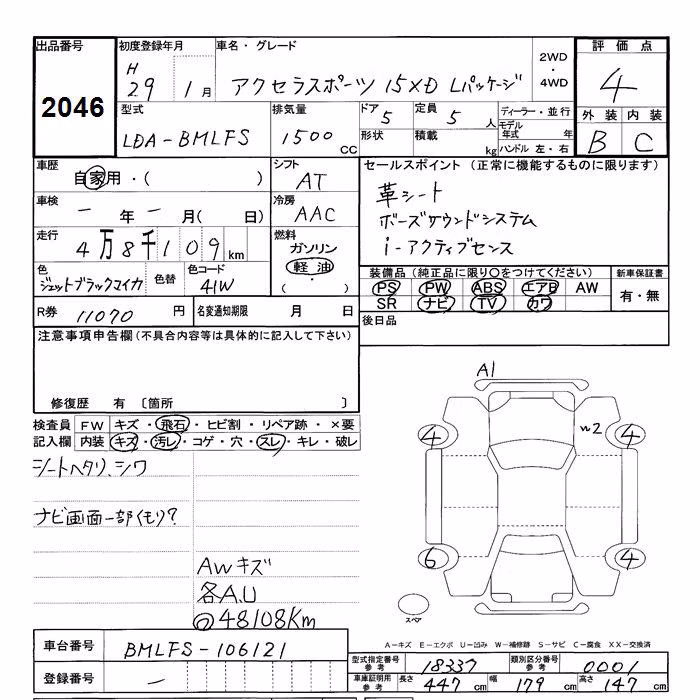 出品番号 2046
初度登録年月 H29 1月
車名・グレード アクセラスポーツ 15XD Lパッケージ
2WD・4WD
評価点 4
外装 B 内装 C
型式 LDA-BMLFS
排気量 1500 CC
ドア 5 形状
定員 5人 積載 kg
ディーラー・並行
モデル年式 年
ハンドル 左・右
車歴 自家用・( )
シフト AT
車検 ー年ー月(日)
冷房 AAC
走行 4万8千109km
燃料 ガソリン 軽油 ・( )
色 ジェットブラックマイカ 色替 色コード 41W
R券 11070円 名変通知期限 月 日
セールスポイント(正常に機能するものに限ります)
革シート
ボーズサウンドシステム
i-アクティブセンス
装備品(純正品に限り○をつけてください) 新車保証書
PS PW ABS エアB AW 有・無
SR ナビ TV カワ
後日品
注意事項申告欄(不具合内容等は具体的に記入して下さい)
修復歴 有 〔箇所 〕
検査員記入欄
FW キズ・飛石・ヒビ割・リペア跡・×要
内装 キズ・汚レ・コゲ・穴・スレ・キレ・破レ
シートヘタリ、シワ
ナビ画面一部くもり?
AWキズ
各A.U
@48108Km
A1
4 w2 4
6 4
スペア
A-キズ E-エクボ U-凹み W-補修跡 S-サビ C-腐食 XX-交換済
車台番号 BMLFS-106121
登録番号 ー
型式指定番号 参考 18337 類別区分番号 参考 0001
車庫証明用 参考 長さ 447cm 幅 179cm 高さ 147cm